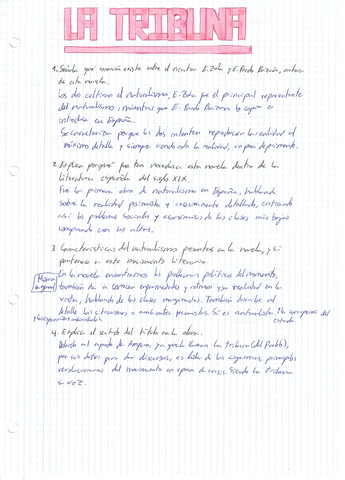 LA TRIBUNA
1. Señala qué conexión existe entre el escritor E.Zola y E.Pardo Bazán, autora
de esta novela.
Los dos cultivan el naturalismo, E.Zola que el principal representante
del naturalismo, mientras que E. Pardo Bazán lo copia e
introduce en España.
Se caracterizan porque los dos intentan reproducir la realidad al
máximo detalle y siempre siendo esta la realidad, un poco deprimente.
2. Explica porqué fue tan novedosa esta novela dentro de la
literatura española del siglo XIX.
Fue la primera obra de naturalismo en España, hablando
sobre la realidad pesimista y excesivamente detallada, criticando
así los problemas sociales y económicos de las clases más bajas
comparando con las altas.
3. Características del naturalismo presentes en la novela, y si
pertenece a este movimiento literario.
Miseria en general
En la novela encontramos los problemas políticos del momento,
también te a conocer enfermedades y retrasos y su realidad en la
vida, hablando de las clases marginadas. También describe al
detalle las situaciones o ambientes pesimistas. Sí es naturalista.
4. Explica el sentido del título en la obra.
Debido al apodo de Amparo, ya que le llaman la tribuna (del Pueblo),
por sus dotes para dar discursos, es líder de las cigarreras, principales
del movimiento en época de crisis. Siendo la tribuna
su voz.